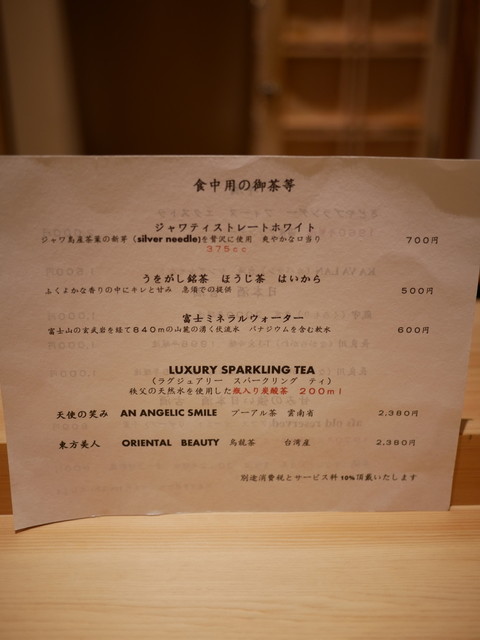 食中用の御茶等
ジャワティストレートホワイト
ジャワ島産茶葉の新芽(silver needle)を贅沢に使用 爽やかな口当り 700円
375cc
うをがし銘茶 ほうじ茶 はいから
ふくよかな香りの中にキレと甘み 急須での提供 500円
富士ミネラルウォーター
富士山の玄武岩を経て840mの山麓の湧く伏流水 バナジウムを含む軟水 600円
LUXURY SPARKLING TEA
(ラグジュアリー スパークリング ティ)
秩父の天然水を使用した瓶入り炭酸茶 200ml
天使の笑み AN ANGELIC SMILE プーアル茶 雲南省 2,380円
東方美人 ORIENTAL BEAUTY 烏龍茶 台湾産 2,380円
別途消費税とサービス料10%頂戴いたします